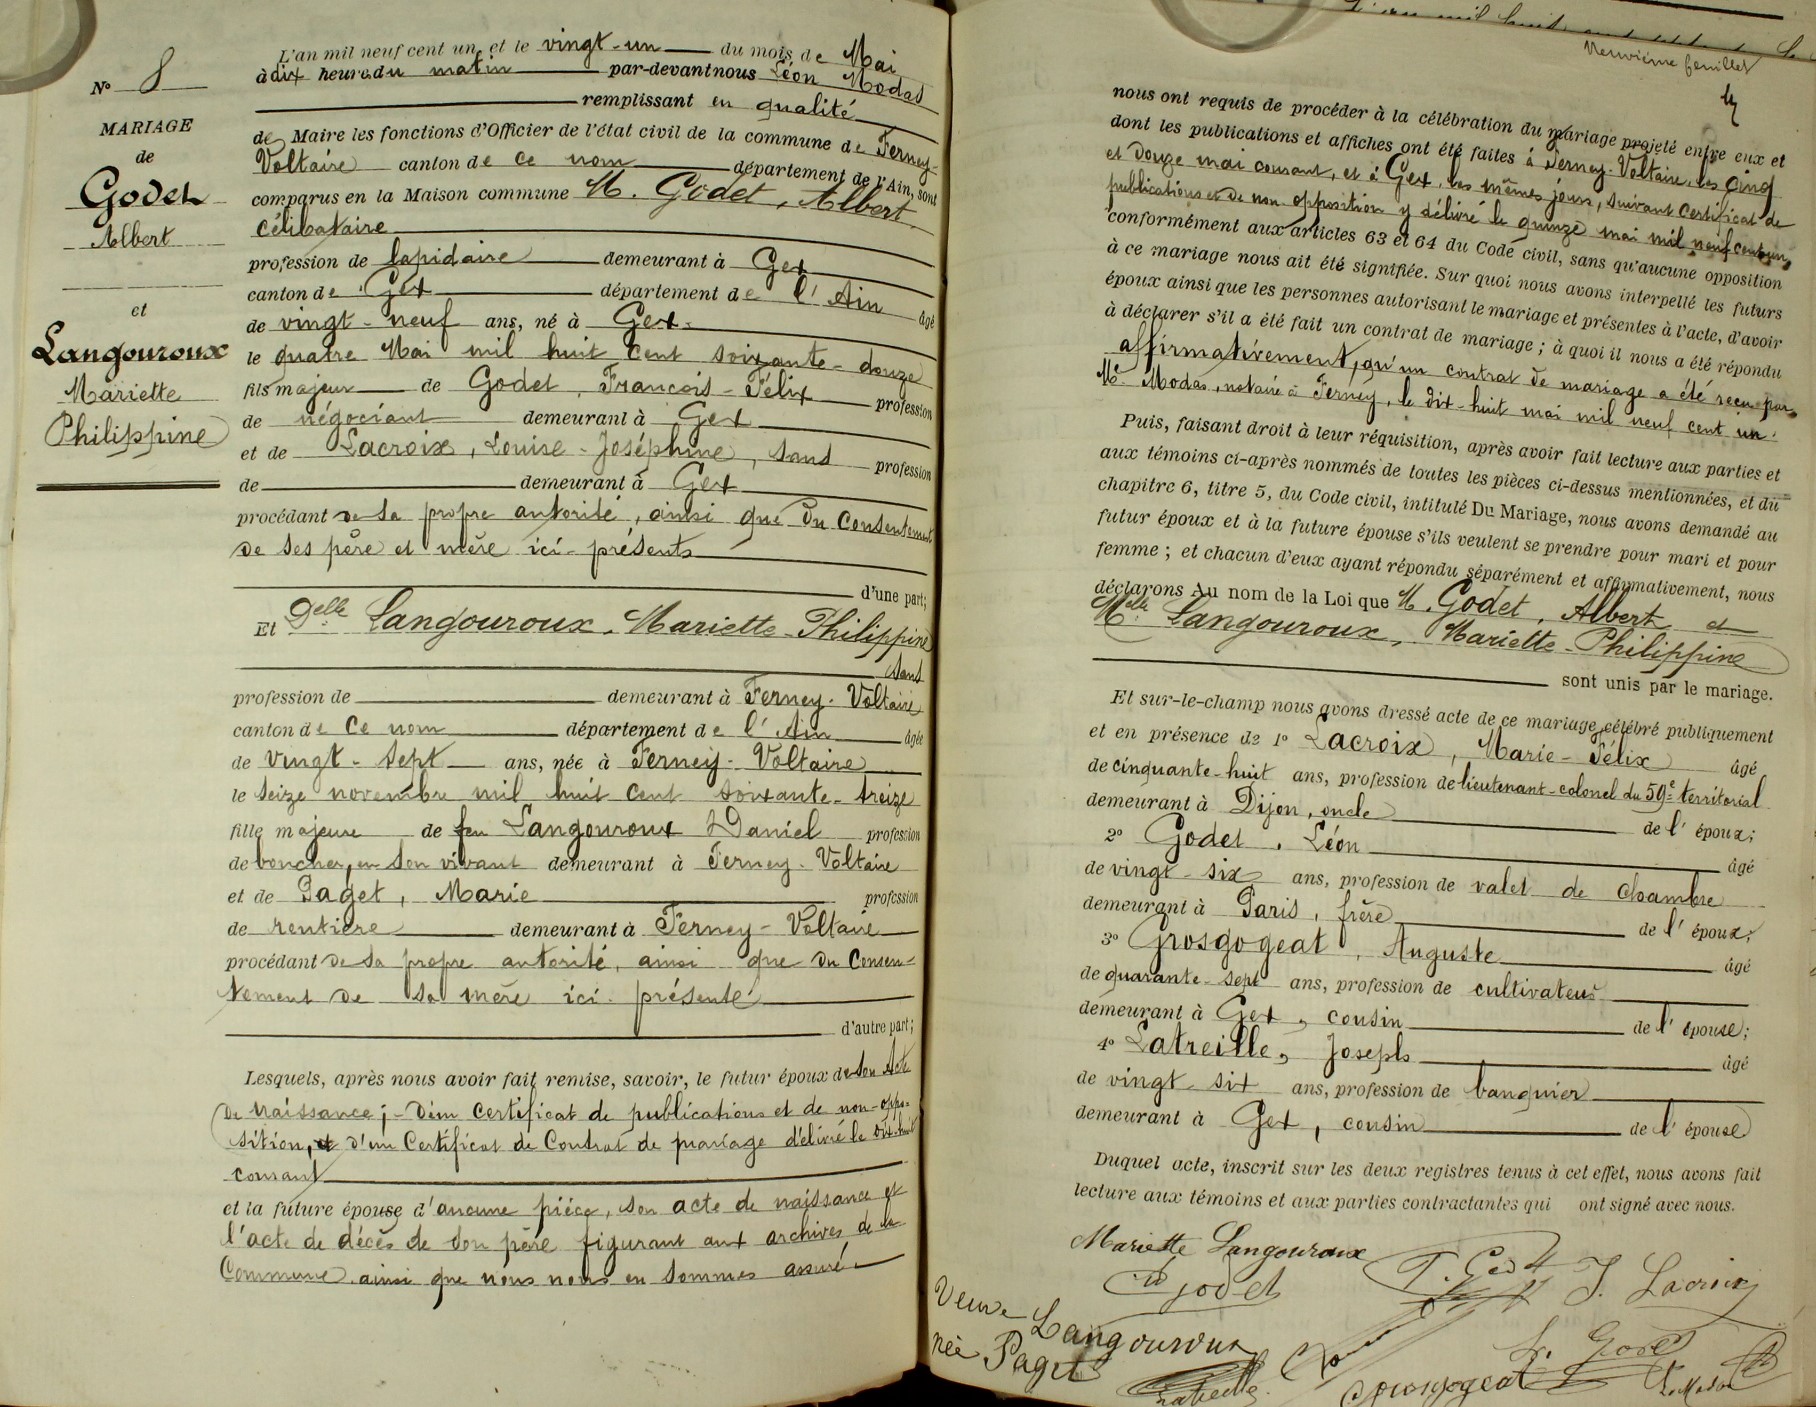 L'an mil neuf cent un et le vingt-un du mois de Mai
à dix heure du matin par-devant nous Léon Modas
remplissant en qualité
de Maire les fonctions d'Officier de l'état civil de la commune de Ferney-
Voltaire canton de ce nom département de l'Ain, sont
comparus en la Maison commune M. Godet, Albert,
célibataire
profession de lapidaire demeurant à Gex
canton de Gex département de l'Ain âgé
de vingt-neuf ans, né à Gex
le quatre Mai mil huit cent soixante-douze
fils majeur de Godet, François-Félix profession
de négociant demeurant à Gex
et de Lacroix, Louise-Joséphine, sans profession
de demeurant à Gex
procédant de sa propre autorité, ainsi que du consentement
de ses père et mère ici-présents
d'une part;
Et Delle Langouroux, Mariette-Philippine
sans
profession de demeurant à Ferney-Voltaire
canton de ce nom département de l'Ain âgée
de vingt-sept ans, née à Ferney-Voltaire
le seize novembre mil huit cent soixante-treize
fille majeure de feu Langouroux Daniel profession
de boucher, en son vivant demeurant à Ferney-Voltaire
et de Paget, Marie profession
de rentière demeurant à Ferney-Voltaire
procédant de sa propre autorité, ainsi que du consen-
tement de sa mère ici présente
d'autre part;
Lesquels, après nous avoir fait remise, savoir, le futur époux de son Acte
de naissance; - d'un certificat de publications et de non-oppo-
sition, et d'un Certificat de Contrat de mariage délivré le dix-huit
courant
et la future épouse d'aucune pièce, son acte de naissance et
l'acte de décès de son père figurant aux archives de la
Commune, ainsi que nous nous en sommes assuré
N° 8
MARIAGE
de
Godet
Albert
et
Langouroux
Mariette
Philippine
Neuvième feuillet
nous ont requis de procéder à la célébration du mariage projeté entre eux et
dont les publications et affiches ont été faites à Ferney-Voltaire, les cinq
et douze mai courant, et à Gex, les mêmes jours, suivant certificat de
publications et de non opposition y délivré le quinze mai mil neuf cent un,
conformément aux articles 63 et 64 du Code civil, sans qu'aucune opposition
à ce mariage nous ait été signifiée. Sur quoi nous avons interpellé les futurs
époux ainsi que les personnes autorisant le mariage et présentes à l'acte, d'avoir
à déclarer s'il a été fait un contrat de mariage; à quoi il nous a été répondu
affirmativement, qu'un contrat de mariage a été reçu par
Me Modas, notaire à Ferney, le dix-huit mai mil neuf cent un.
Puis, faisant droit à leur réquisition, après avoir fait lecture aux parties et
aux témoins ci-après nommés de toutes les pièces ci-dessus mentionnées, et du
chapitre 6, titre 5, du Code civil, intitulé Du Mariage, nous avons demandé au
futur époux et à la future épouse s'ils veulent se prendre pour mari et pour
femme; et chacun d'eux ayant répondu séparément et affirmativement, nous
déclarons Au nom de la Loi que M. Godet, Albert et
Melle Langouroux, Mariette-Philippine
sont unis par le mariage.
Et sur-le-champ nous avons dressé acte de ce mariage célébré publiquement
et en présence de 1° Lacroix, Marie-Félix âgé
de cinquante-huit ans, profession de lieutenant-colonel du 59e territorial
demeurant à Dijon, oncle de l'époux;
2° Godet, Léon âgé
de vingt-six ans, profession de valet de chambre
demeurant à Paris, frère de l'époux;
3° Grosgogeat, Auguste âgé
de quarante-sept ans, profession de cultivateur
demeurant à Gex, cousin de l'épouse;
4° Latreille, Joseph âgé
de vingt-six ans, profession de banquier
demeurant à Gex, cousin de l'épouse
Duquel acte, inscrit sur les deux registres tenus à cet effet, nous avons fait
lecture aux témoins et aux parties contractantes qui ont signé avec nous.
Mariette Langouroux
Godet
F. Godet
J. Lacroix
Veuve Langouroux
née Paget
L. Godet
Latreille
Grosgogeat
L. Modas